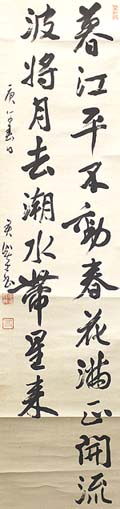 暮江平不動春花滿正開流
波將月去潮水帶星来
庚
春日